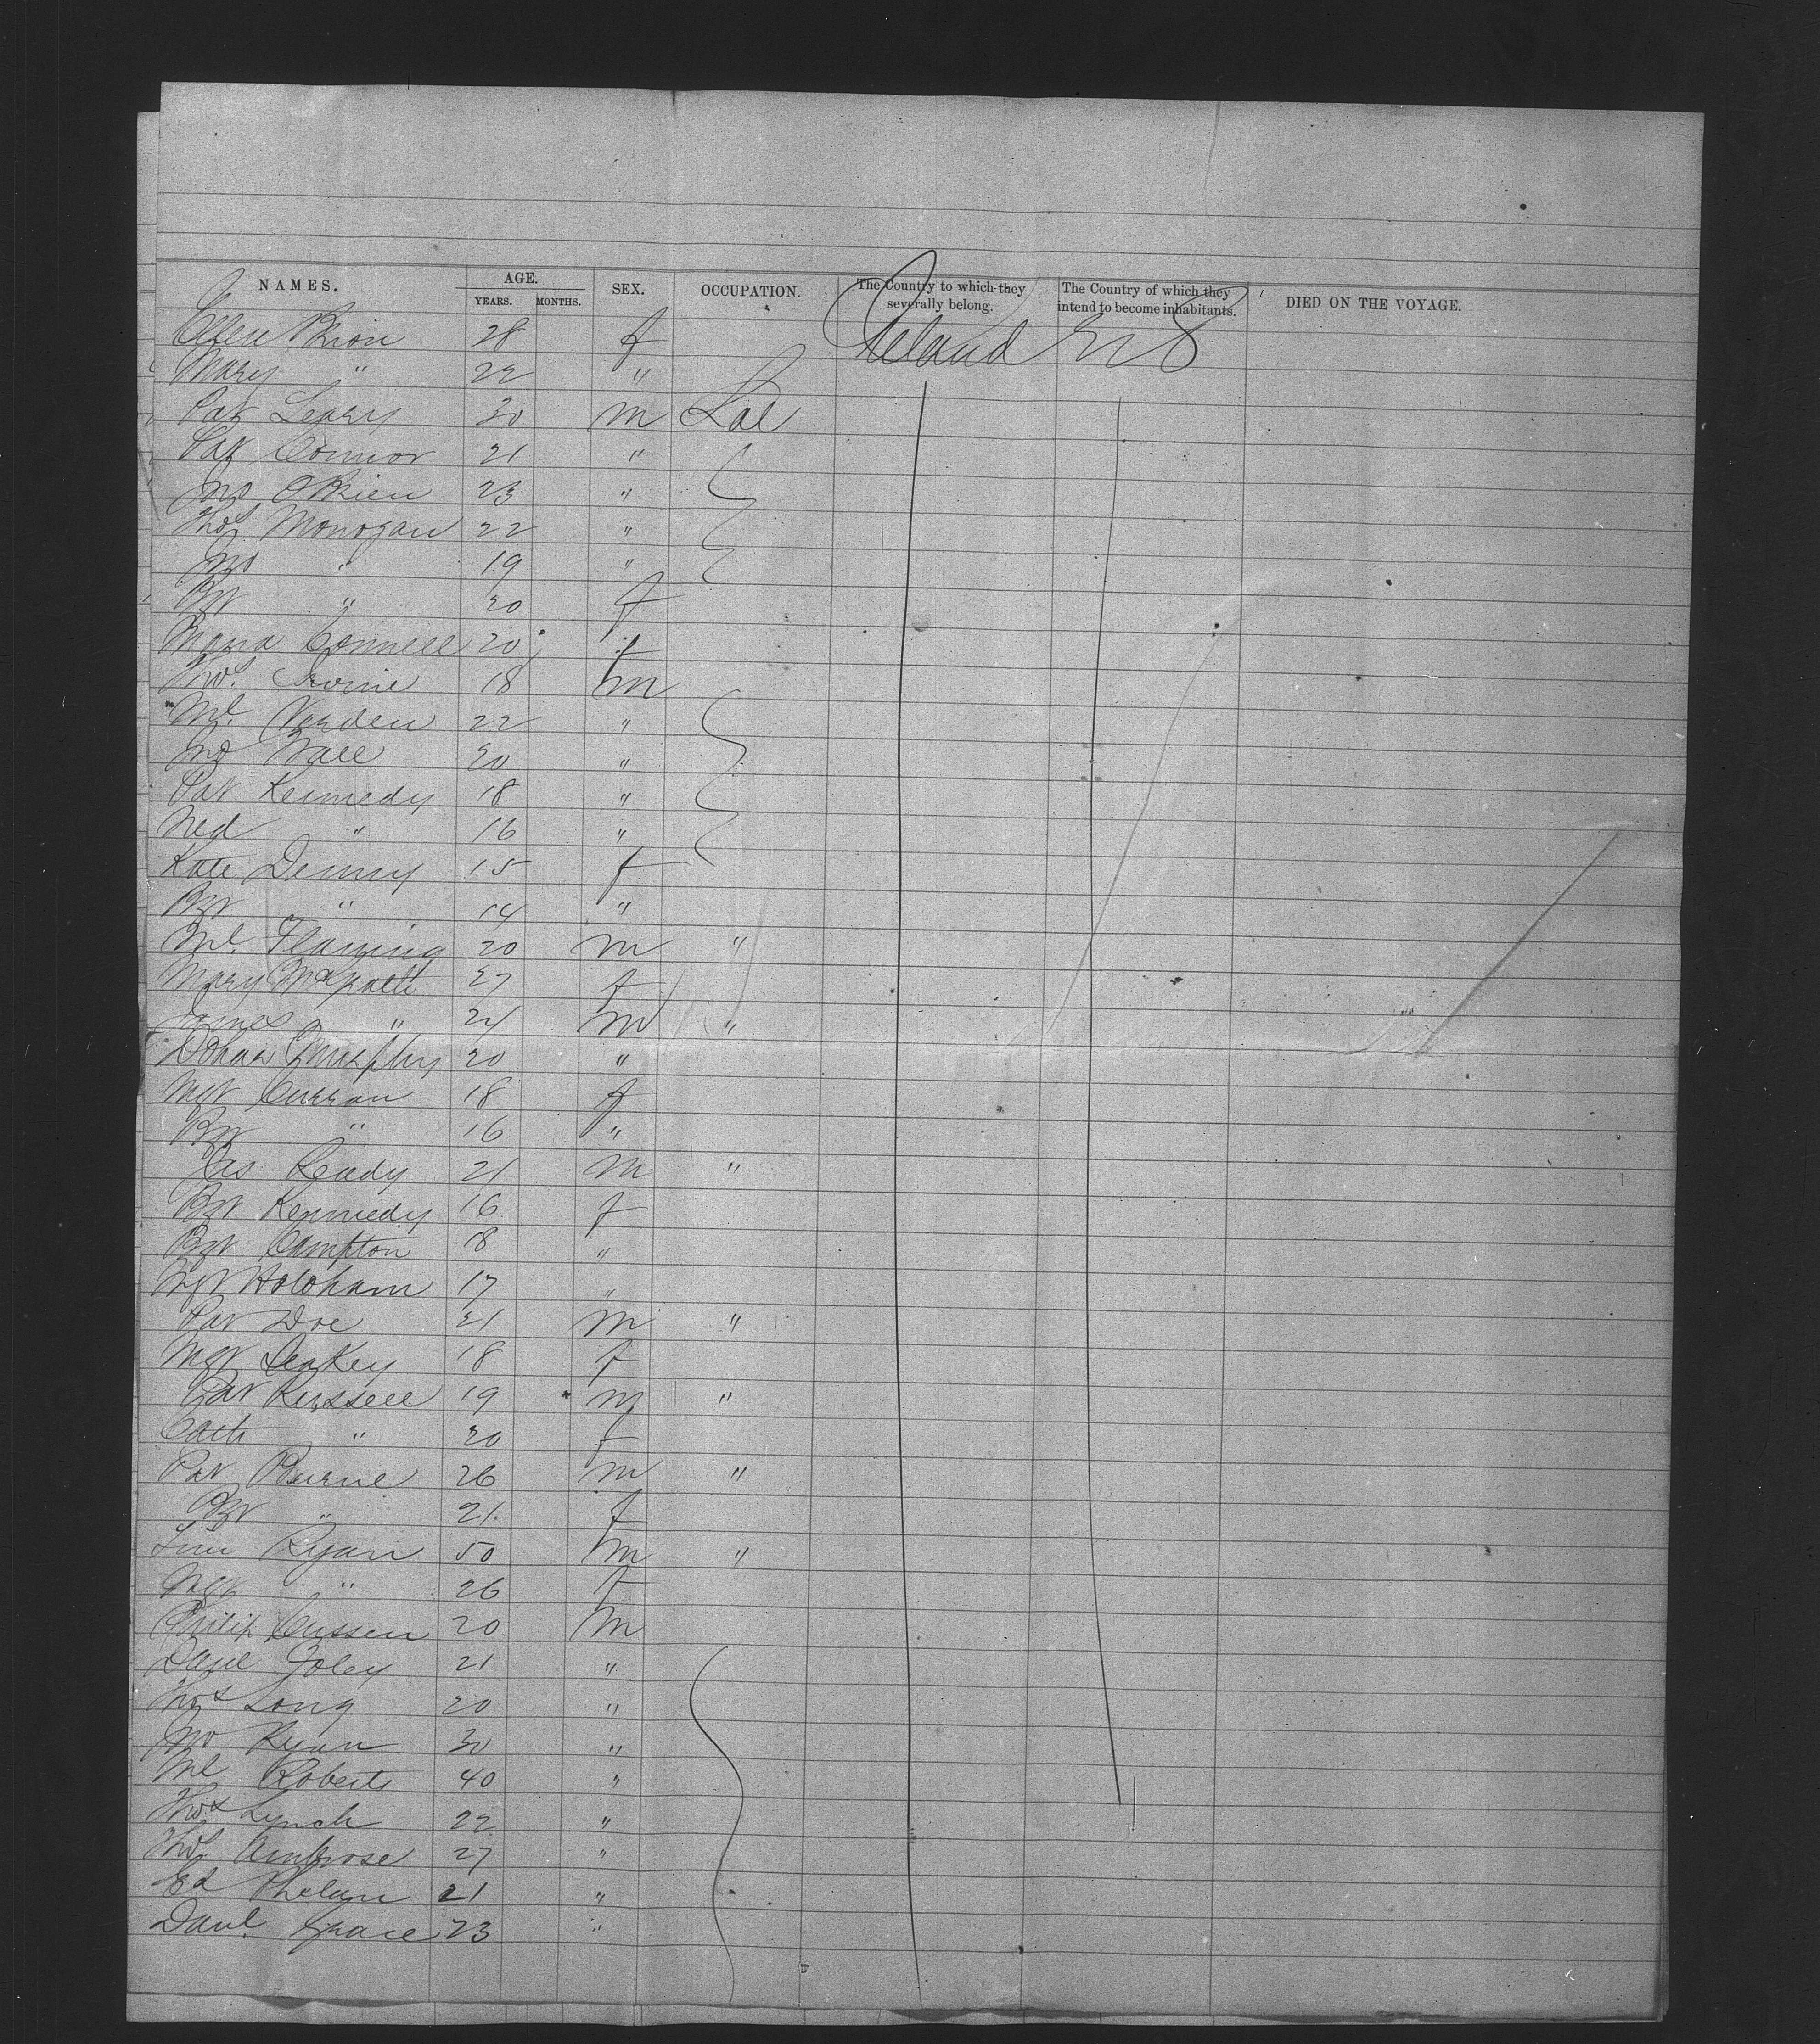 NAMES. AGE. SEX. OCCUPATION. The Country to which they severally belong. The Country of which they intend to become inhabitants. DIED ON THE VOYAGE.
YEARS. MONTHS.
Ellen Brien 28 f Ireland U S
Mary " 22 "
Pat Leary 30 m Lab
Pat Connor 21 "
Jno OBrien 23 "
Thos Monogan 22 "
Jno " 19 "
Bgt " 20 f
Maria Connell 20 f
Thos. Irvine 18 m
Ml. Verden 22 "
Jno Wall 20 "
Pat Kennedy 18 "
Ned " 16 "
Kate Denny 15 f
Bgt " 14 "
Ml. Flaming 20 m "
Mary 27 f
James " 24 m "
Murphy 20 "
Mgt Curran 18 f
Bgt " 16 "
Jas Ready 21 m "
Bgt Kennedy 16 f
Bgt Campton 18 "
Mgt Holoham 17 "
Pat Doe 21 m "
Mgt Leakey 18 f
Pat Russell 19 m "
Cath " 20 f
Pat Burne 26 m "
Bgt " 21 f
Tim Ryan 50 m "
Mgt " 26 f
Philip Cussen 20 m
Danl Foley 21 "
Thos Long 20 "
Jno Ryan 30 "
Ml Roberts 40 "
Thos Lynch 22 "
Thos Ambrose 27 "
Ed Phelan 21 "
Danl. Grace 23 "